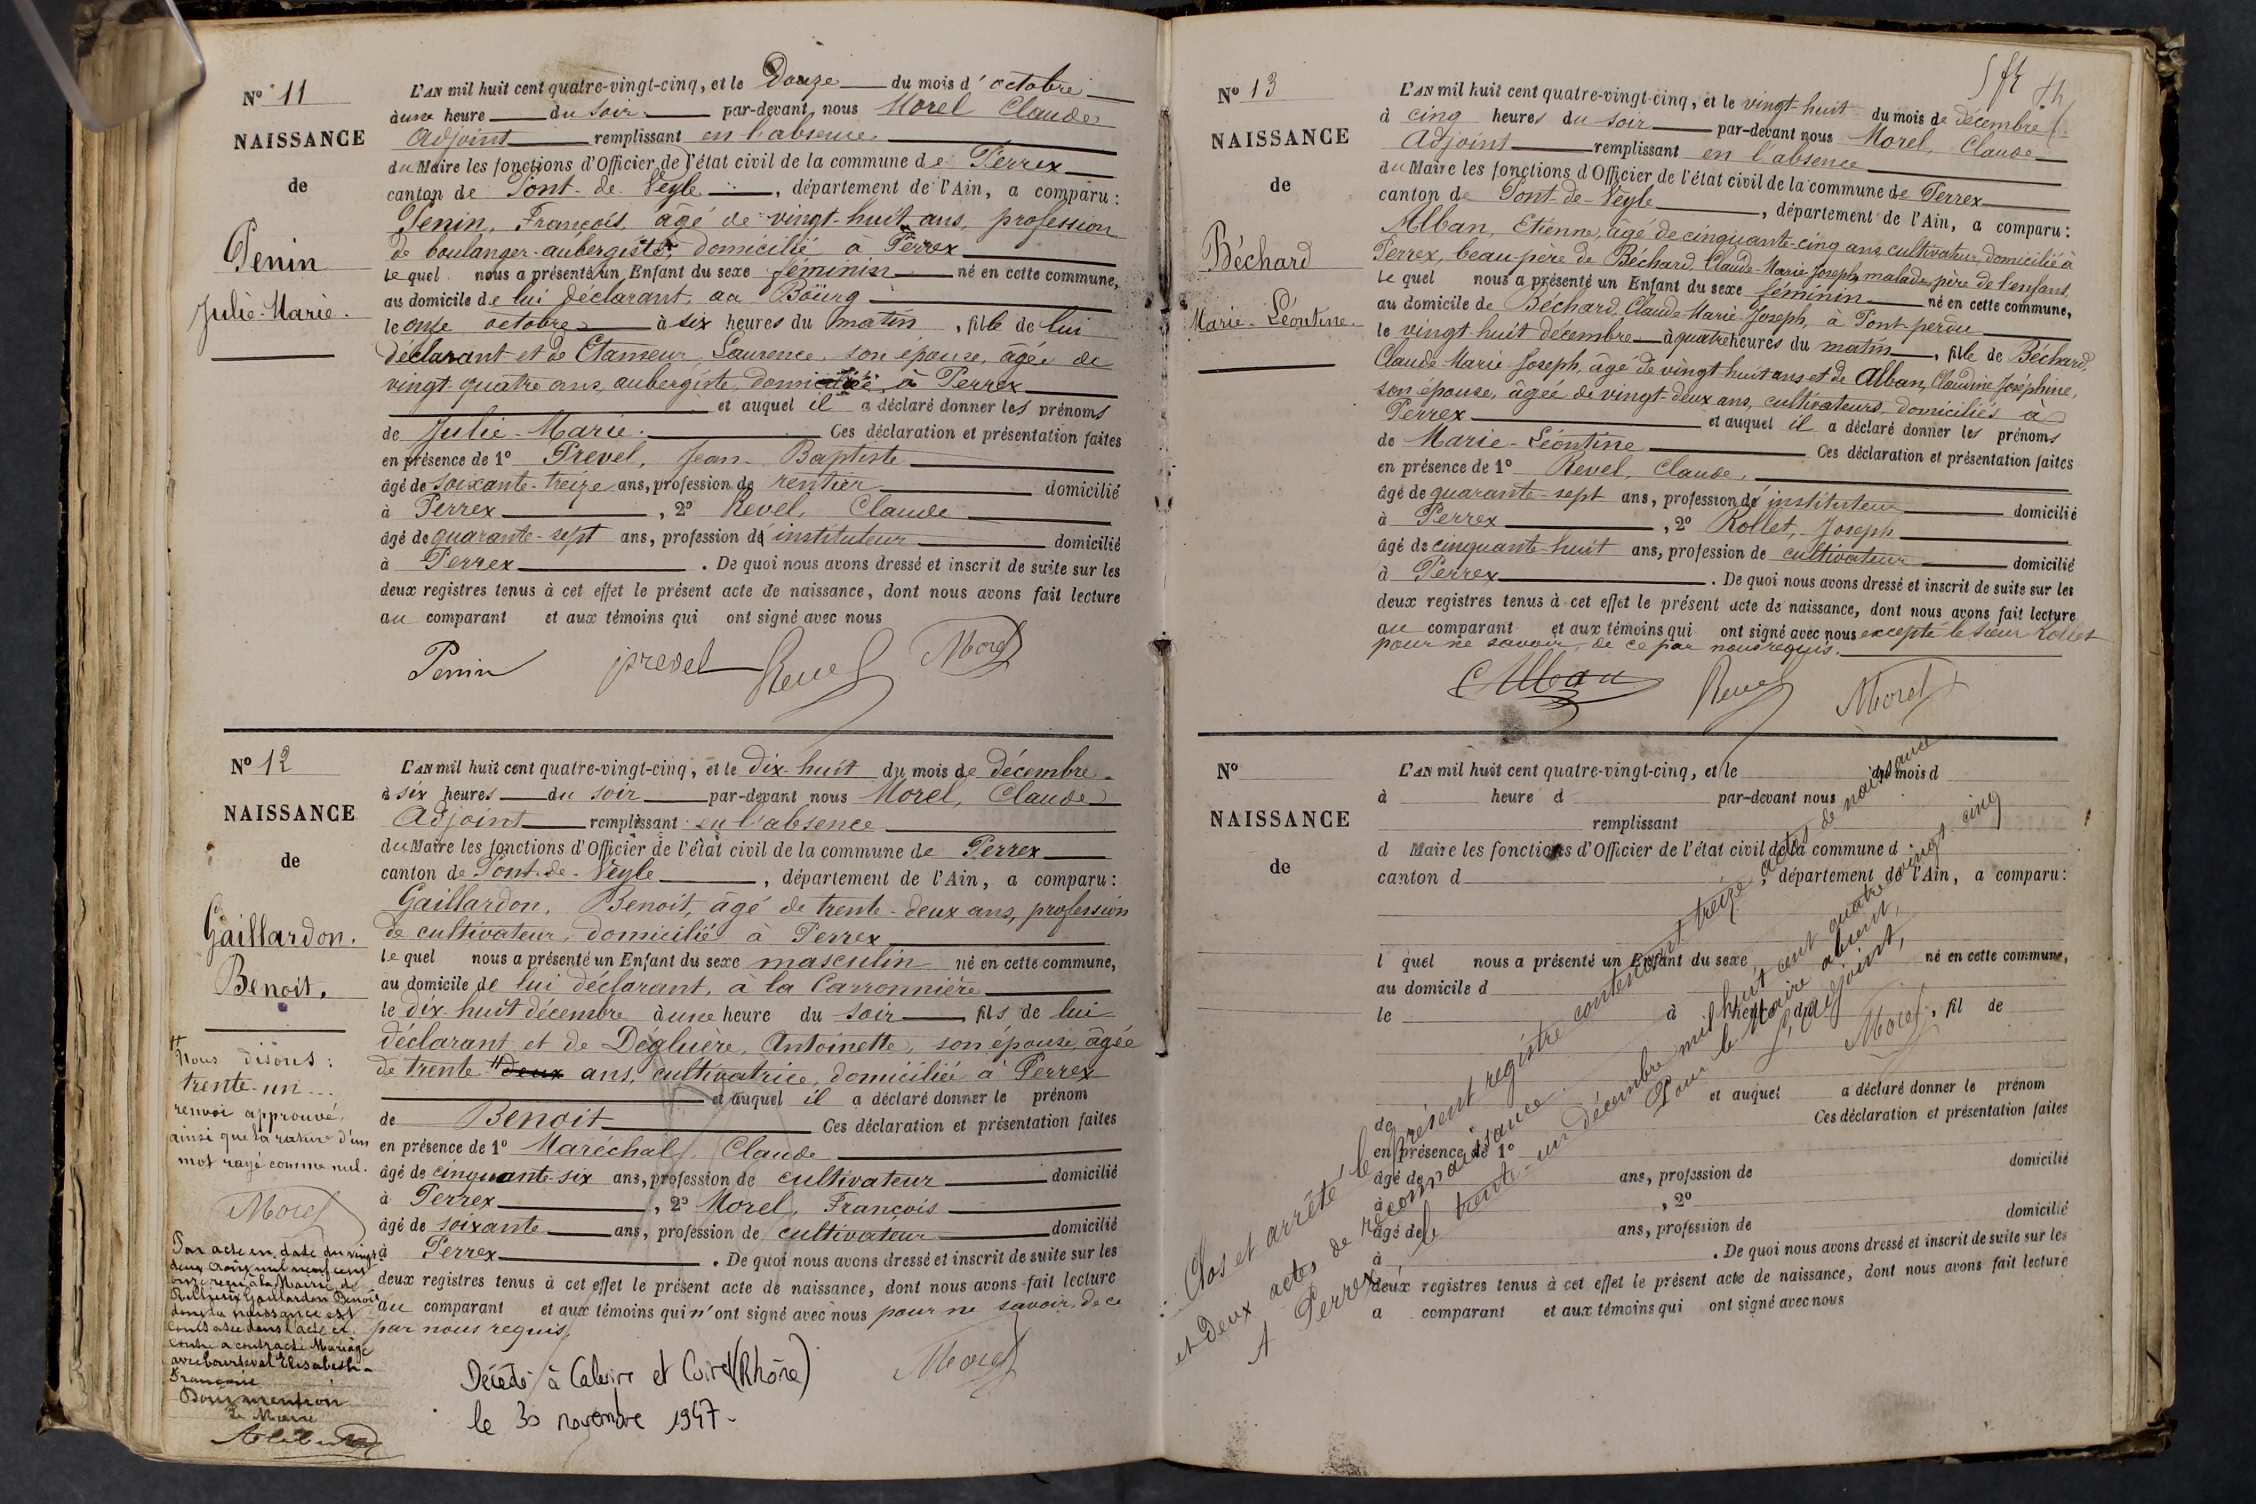 N° 11
NAISSANCE
de
Penin
Julie-Marie.
L'AN mil huit cent quatre-vingt-cinq, et le Douze du mois d'octobre
à une heure du soir par-devant nous Morel Claude
Adjoint remplissant en l'absence
du Maire les fonctions d'Officier de l'état civil de la commune de Perrex
canton de Pont-de-Veyle, département de l'Ain, a comparu :
Penin, François, âgé de vingt-huit ans, profession
de boulanger-aubergiste, domicilié à Perrex
lequel nous a présenté un Enfant du sexe féminin né en cette commune,
au domicile de lui déclarant, au Bourg
le onze octobre à six heures du matin, fille de lui
déclarant et de Etameur, Laurence, son épouse, âgée de
vingt-quatre ans, aubergiste, domiciliée à Perrex
et auquel il a déclaré donner les prénoms
de Julie-Marie. Ces déclaration et présentation faites
en présence de 1° Prevel, Jean-Baptiste
âgé de soixante-treize ans, profession de rentier domicilié
à Perrex, 2° Revel, Claude
âgé de quarante-sept ans, profession d'instituteur domicilié
à Perrex. De quoi nous avons dressé et inscrit de suite sur les
deux registres tenus à cet effet le présent acte de naissance, dont nous avons fait lecture
au comparant et aux témoins qui ont signé avec nous
Penin prevel Revel Morel
N° 12
NAISSANCE
de
Gaillardon.
Benoit.
L'AN mil huit cent quatre-vingt-cinq, et le dix-huit du mois de décembre
à six heures du soir par-devant nous Morel, Claude
Adjoint remplissant en l'absence
du Maire les fonctions d'Officier de l'état civil de la commune de Perrex
canton de Pont-de-Veyle, département de l'Ain, a comparu :
Gaillardon, Benoit, âgé de trente-deux ans, profession
de cultivateur, domicilié à Perrex
lequel nous a présenté un Enfant du sexe masculin né en cette commune,
au domicile de lui déclarant, à la Carronnière
le dix-huit décembre à une heure du soir, fils de lui
déclarant et de Dégluère, Antoinette, son épouse, âgée
de trente # deux ans, cultivatrice, domiciliée à Perrex
et auquel il a déclaré donner le prénom
de Benoit Ces déclaration et présentation faites
en présence de 1° Maréchal, Claude
âgé de cinquante-six ans, profession de cultivateur domicilié
à Perrex, 2° Morel, François
âgé de soixante ans, profession de cultivateur domicilié
à Perrex. De quoi nous avons dressé et inscrit de suite sur les
deux registres tenus à cet effet le présent acte de naissance, dont nous avons fait lecture
au comparant et aux témoins qui n'ont signé avec nous pour ne savoir, de ce
par nous requis.
Morel
Décédé à Caluire et Cuire (Rhône)
le 30 novembre 1947-
# Nous disons :
trente-un...
renvoi approuvé,
ainsi que la rature d'un
mot rayé comme nul.
Morel
Par acte en date du vingt
deux Août mil neuf cent
onze reçu à la Mairie de
Gaillardon Benoit
dont la naissance est
constatée dans l'acte ci
contre a contracté Mariage
avec Elisabeth
Françoise
Dont mention
Le Maire
N° 13
NAISSANCE
de
Béchard
Marie-Léontine.
L'AN mil huit cent quatre-vingt-cinq, et le vingt-huit du mois de décembre
à cinq heures du soir par-devant nous Morel, Claude
Adjoint remplissant en l'absence
du Maire les fonctions d'Officier de l'état civil de la commune de Perrex
canton de Pont-de-Veyle, département de l'Ain, a comparu :
Alban, Etienne, âgé de cinquante-cinq ans, cultivateur, domicilié à
Perrex, beau-père de Béchard, Claude-Marie-Joseph, malade, père de l'enfant,
lequel nous a présenté un Enfant du sexe féminin né en cette commune,
au domicile de Béchard, Claude-Marie-Joseph, à Pont-perdu
le vingt-huit décembre à quatre heures du matin, fille de Béchard,
Claude-Marie-Joseph, âgé de vingt-huit ans et de Alban, Claudine Joséphine,
son épouse, âgée de vingt-deux ans, cultivateurs, domiciliés à
Perrex et auquel il a déclaré donner les prénoms
de Marie-Léontine Ces déclaration et présentation faites
en présence de 1° Revel, Claude,
âgé de quarante-sept ans, profession d'instituteur domicilié
à Perrex, 2° Rollet, Joseph
âgé de cinquante-huit ans, profession de cultivateur domicilié
à Perrex. De quoi nous avons dressé et inscrit de suite sur les
deux registres tenus à cet effet le présent acte de naissance, dont nous avons fait lecture
au comparant et aux témoins qui ont signé avec nous excepté le sieur Rollet
pour ne savoir, de ce par nous requis.
Alban Revel Morel
N°
NAISSANCE
de
L'AN mil huit cent quatre-vingt-cinq, et le du mois d
à heure d par-devant nous
remplissant
d Maire les fonctions d'Officier de l'état civil de la commune d
canton d , département de l'Ain, a comparu :
l quel nous a présenté un Enfant du sexe né en cette commune,
au domicile d
le à heure du , fil de
et auquel a déclaré donner le prénom
de Ces déclaration et présentation faites
en présence de 1°
âgé de ans, profession de domicilié
à , 2°
âgé de ans, profession de domicilié
à . De quoi nous avons dressé et inscrit de suite sur les
deux registres tenus à cet effet le présent acte de naissance, dont nous avons fait lecture
a comparant et aux témoins qui ont signé avec nous
Clos et arrêté le présent registre contenant treize actes de naissance
et deux actes de reconnaissance.
A Perrex, le trente-un décembre mil huit cent quatre vingt-cinq
Pour le Maire absent,
L'adjoint,
Morel